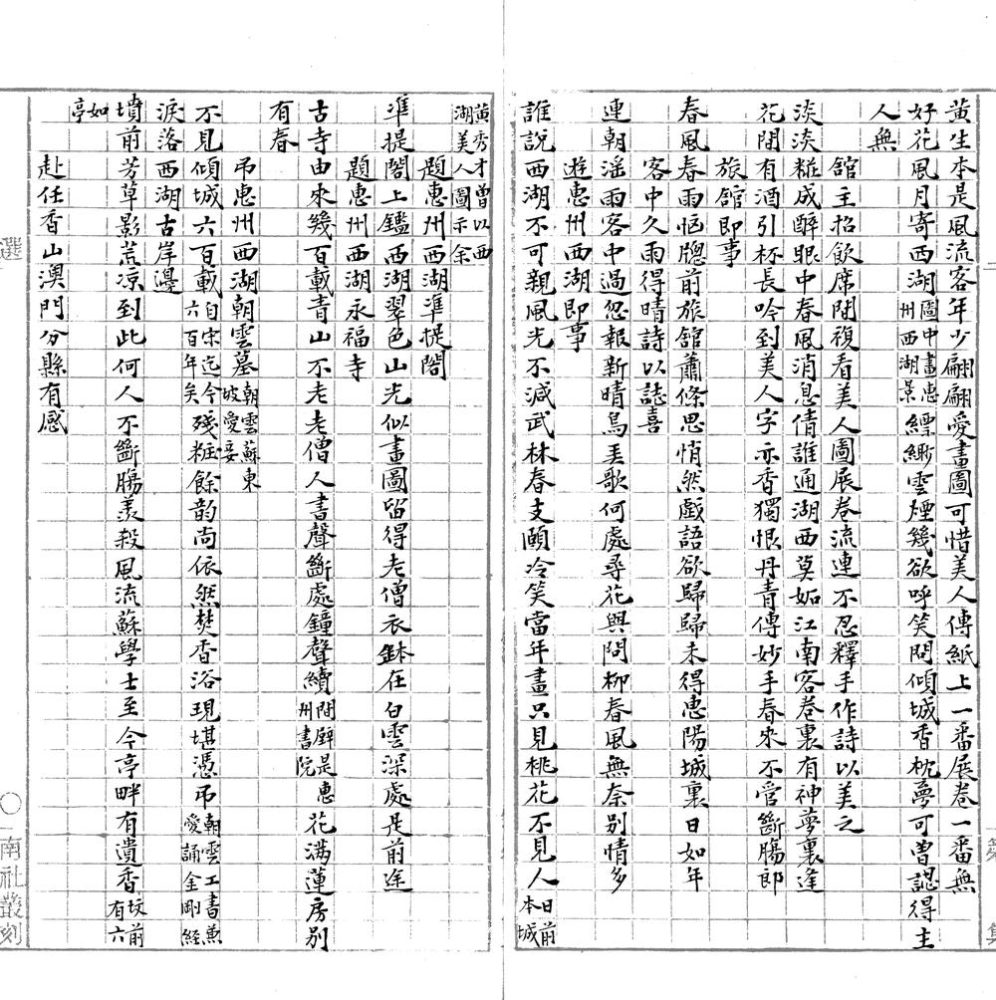 黃生本是風流客年少翩翩愛畫圖可惜美人傳紙上一番展卷一番無
好花風月寄西湖圖中畫惠州西湖景縹緲雲煙幾欲呼笑問傾城香枕夢可曾認得主
人無
館主招飲席間複看美人圖展卷流連不忍釋手作詩以美之
淡淡糚成醉眼中春風消息倩誰通湖西莫妬江南客卷裏有神夢裏逢
花間有酒引杯長吟到美人字亦香獨恨丹青傳妙手春來不管斷腸郎
旅館即事
春風春雨恼牕前旅舘蕭條思悄然戲語欲歸歸未得惠陽城裏日如年
客中久雨得晴詩以誌喜
連朝滛雨客中過忽報新晴鳥弄歌何處尋花興問柳春風無奈别情多
遊惠州西湖即事
誰説西湖不可親風光不減武林春支頤冷笑當年畫只見桃花不見人日前本城
黃秀才曾以西湖美人圖示余
題惠州西湖凖提閣
凖提閣上鑑西湖翠色山光似畫圖留得老僧衣鉢在白雲深處是前途
題惠州西湖永福寺
古寺由來幾百載青山不老老僧人書聲斷處鐘聲續間壁是惠州書院花满蓮房别
有春
吊惠州西湖朝雲墓朝雲蘇東坡愛妾
不見傾城六百載自宋迄今六百年矣殘粧餘韵尚依然焚香浴現堪憑吊朝雲工書兼愛誦金剛經
淚落西湖古岸邊
墳前芳草影荒凉到此何人不斷腸羨殺風流蘇學士至今亭畔有遺香坟前有六
如亭
赴任香山澳門分縣有感
選
〇
南社叢刻
第
二
集